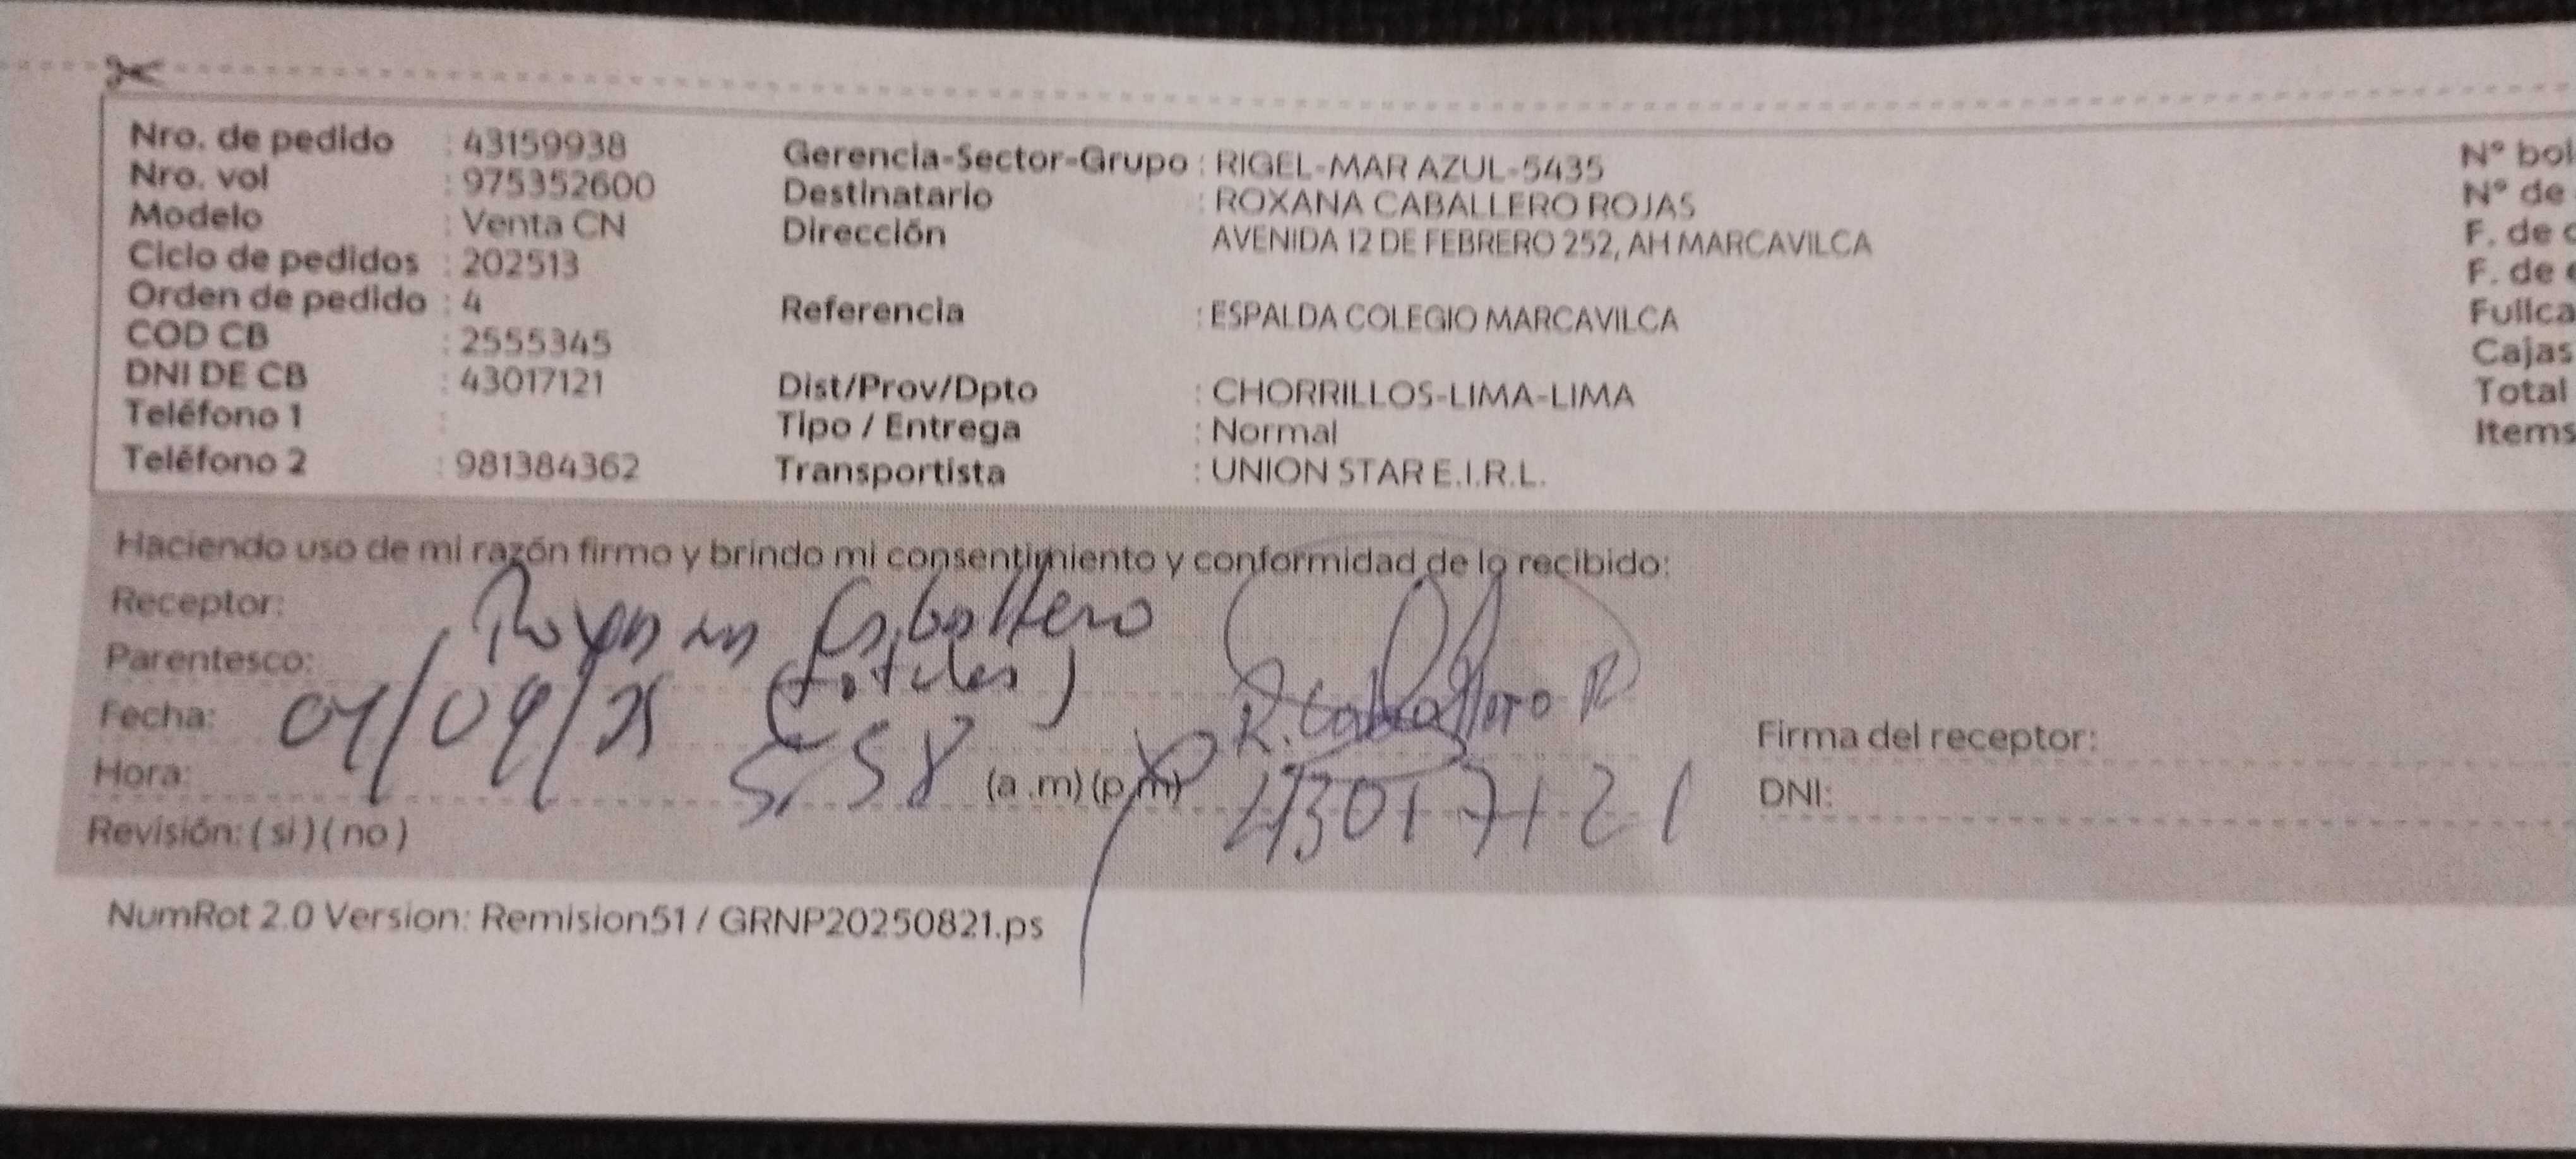 Nro. de pedido : 43159938
Nro. vol : 975352600
Modelo : Venta CN
Ciclo de pedidos : 202513
Orden de pedido : 4
COD CB : 2555345
DNI DE CB : 43017121
Teléfono 1 :
Teléfono 2 : 981384362
Gerencia-Sector-Grupo : RIGEL-MAR AZUL-5435
Destinatario : ROXANA CABALLERO ROJAS
Dirección AVENIDA 12 DE FEBRERO 252, AH MARCAVILCA
Referencia : ESPALDA COLEGIO MARCAVILCA
Dist/Prov/Dpto : CHORRILLOS-LIMA-LIMA
Tipo / Entrega : Normal
Transportista : UNION STAR E.I.R.L.
N° bol
N° de
F. de
F. de
Fullca
Cajas
Total
Items
Haciendo uso de mi razón firmo y brindo mi consentimiento y conformidad de lo recibido:
Receptor: Caballero
Parentesco:
Fecha:
R. Caballero R
Hora: 5:58 (a .m) (p.m) 43017121
Firma del receptor:
DNI:
Revisión: ( si ) ( no )
NumRot 2.0 Version: Remision51 / GRNP20250821.ps